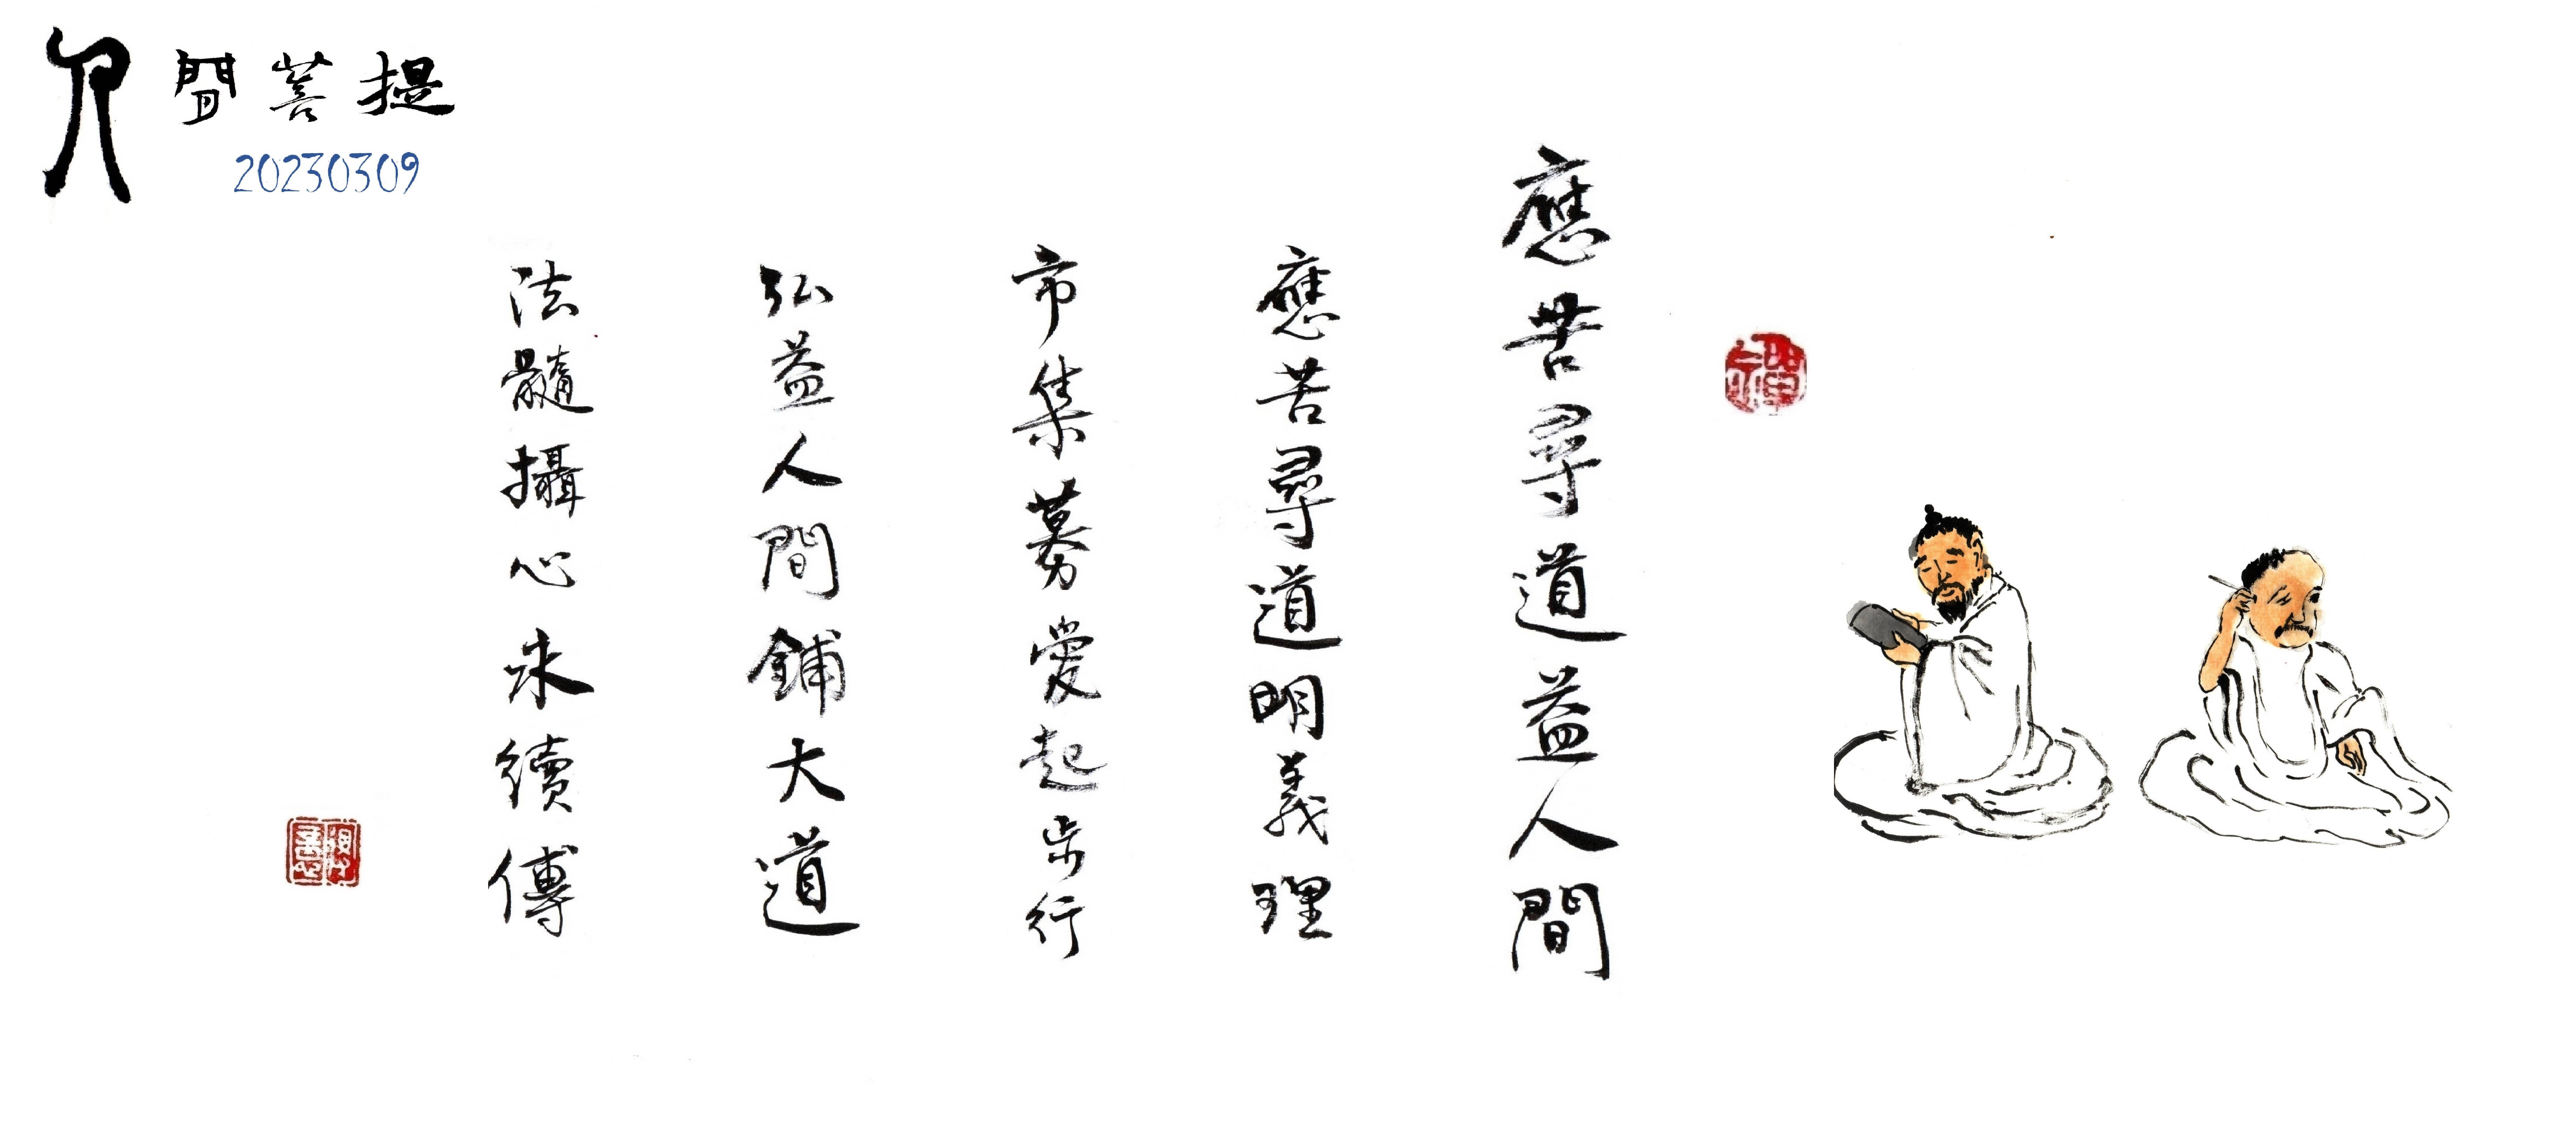 人間菩提
20230309
應苦尋道益人間
應苦尋道明義理
市集募愛起步行
弘益人間鋪大道
法髓攝心永續傳